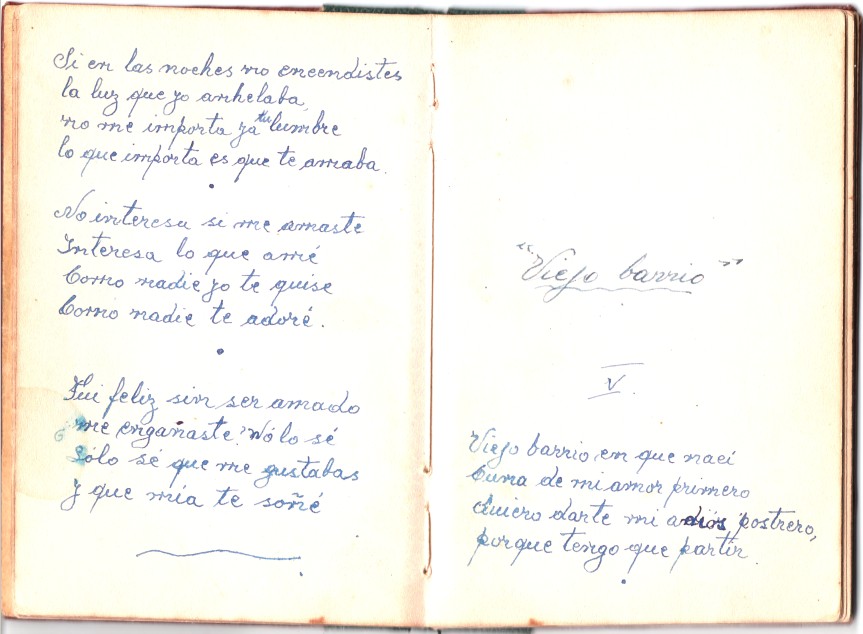 Si en las noches no encendistes
la luz que yo anhelaba,
no me importa ya tu lumbre
lo que importa es que te amaba.
No interesa si me amaste
Interesa lo que amé
Como nadie yo te quise
Como nadie te adoré.
Fui feliz sin ser amado
¿me engañaste? No lo sé
Sólo sé que me gustabas
y que mía te soñé
"Viejo barrio"
V
Viejo barrio en que nací
Cuna de mi amor primero
Quiero darte mi adiós postrero,
porque tengo que partir.